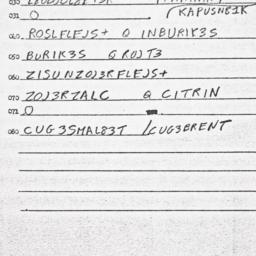 031 O (KAPUSNB1K
040 ROSLFLEJS+ O INBURIK3S
050 BURIK3S GROZT3
060 ZISUNZOJ3RFLEJS+
070 ZOJ3RZALC Q CITRIN
072 O
080 CUG3SMAL83T /CUG3BRENT